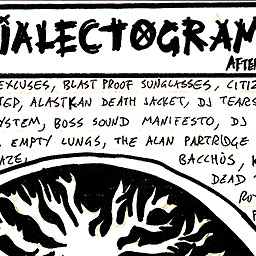 IALECTOGRAM
AFTE
EXCUSES, BLAST PROOF SUNGLASSES, CITIZ
TEP, ALASTKAN DEATH JACKET, DJ TEARS
YSTEM, BOSS SOUND MANIFESTO, DJ
EMPTY LUNGS, THE ALAN PARTRIDGE
AZE, BACCHUS, K
DEAD
RO